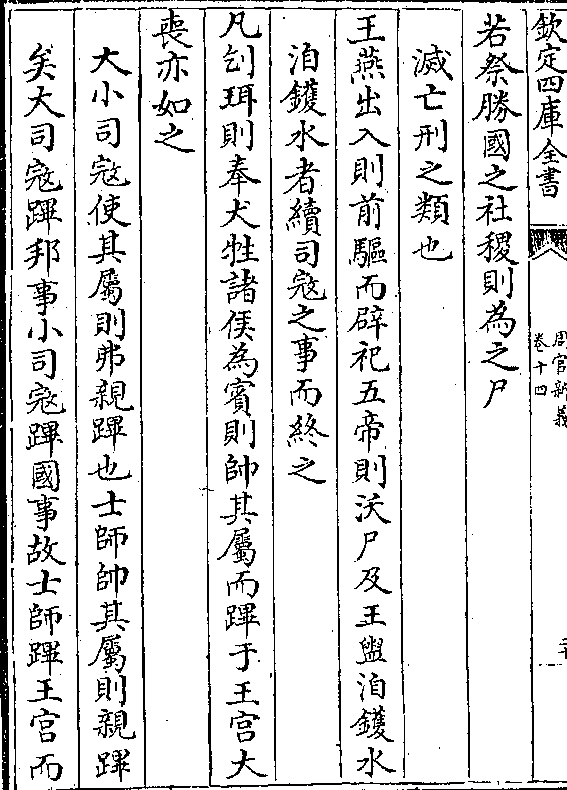 欽定四庫全書
周官新義
卷十四
若祭勝國之社稷則為之尸
滅亡刑之類也
王燕出入則前驅而辟祀五帝則沃尸及王盥洎鑊水
洎鑊水者續司寇之事而終之
凡刉珥則奉犬牲諸侯為賓則帥其屬而蹕于王宫大
喪亦如之
大小司寇使其屬則弗親蹕也士師帥其屬則親蹕
矣大司寇蹕邦事小司寇蹕國事故士師蹕王宫而